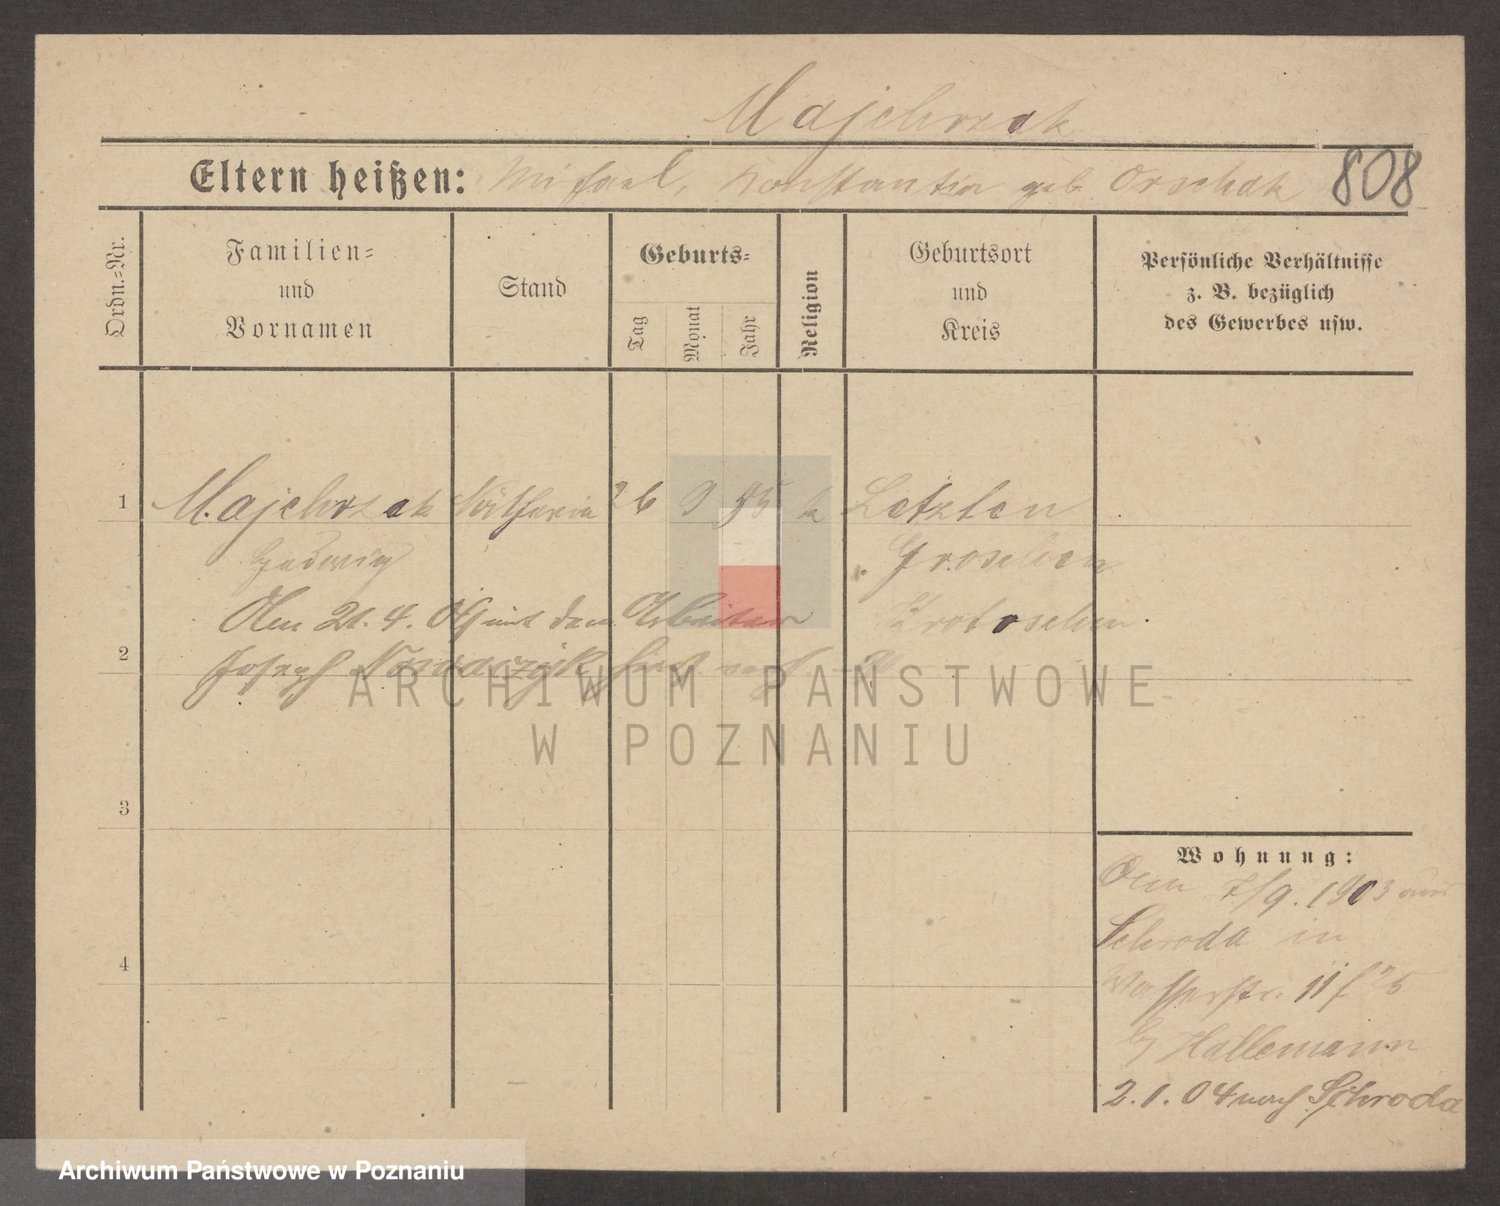 Majchrzak
Eltern heißen: Michael, Konstantia geb. Orschak 808
Ordn.-Nr.
Familien- und Vornamen
Stand
Geburts-
Tag
Monat
Jahr
Religion
Geburtsort und Kreis
Persönliche Verhältnisse z. B. bezüglich des Gewerbes usw.
1 Majchrzak 26 9 85 k
Hedwig Groschen
Den 21. 4. mit dem Arbeiter Krotoschin
2 Joseph
3
4
Wohnung:
Den 7/9. 1903 aus
Schroda in
Wasserstr. 11
Hallemann
2.1.04 nach Schroda
ARCHIWUM PAŃSTWOWE
W POZNANIU
Archiwum Państwowe w Poznaniu